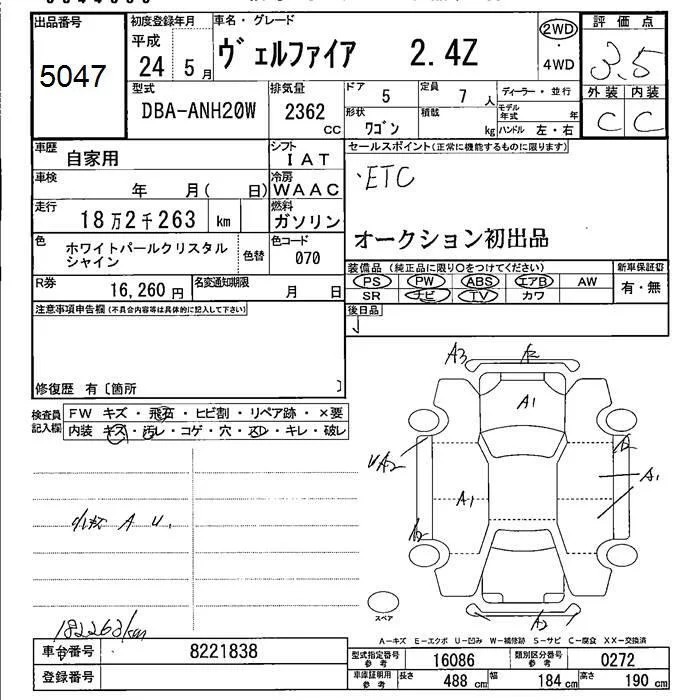 出品番号 初度登録年月 車名・グレード 評価点
5047 平成 24 5月 ヴェルファイア 2.4Z 2WD・4WD 3.5
外装 内装
C C
型式 排気量 ドア 5 定員 7人 ディーラー・並行
DBA-ANH20W 2362cc 形状 ワゴン 積載 kg モデル年式 年
ハンドル 左・右
車歴 自家用 シフト IAT セールスポイント(正常に機能するものに限ります)
車検 年 月( 日) 冷房 WAAC ・ETC
走行 18万2千263 km 燃料 ガソリン
オークション初出品
色 ホワイトパールクリスタルシャイン 色替 色コード 070
装備品(純正品に限り○をつけてください) 新車保証書
PS PW ABS エアB AW 有・無
SR ナビ TV カワ
R券 16,260円 名変通知期限 月 日
後日品
注意事項申告欄(不具合内容等は具体的に記入して下さい)
修復歴 有〔箇所 〕
検査員記入欄 FW キズ・飛石・ヒビ割・リペア跡・×要
内装 キズ・汚レ・コゲ・穴・スレ・キレ・破レ
A3 A2
A1
UA2 A2
A1 A1
A2
A U.
A2
スペア
182263km
A-キズ E-エクボ U-凹み W-補修跡 S-サビ C-腐食 XX-交換済
車台番号 8221838 型式指定番号 参考 16086 類別区分番号 参考 0272
登録番号 車庫証明用 参考 長さ 488cm 幅 184cm 高さ 190cm